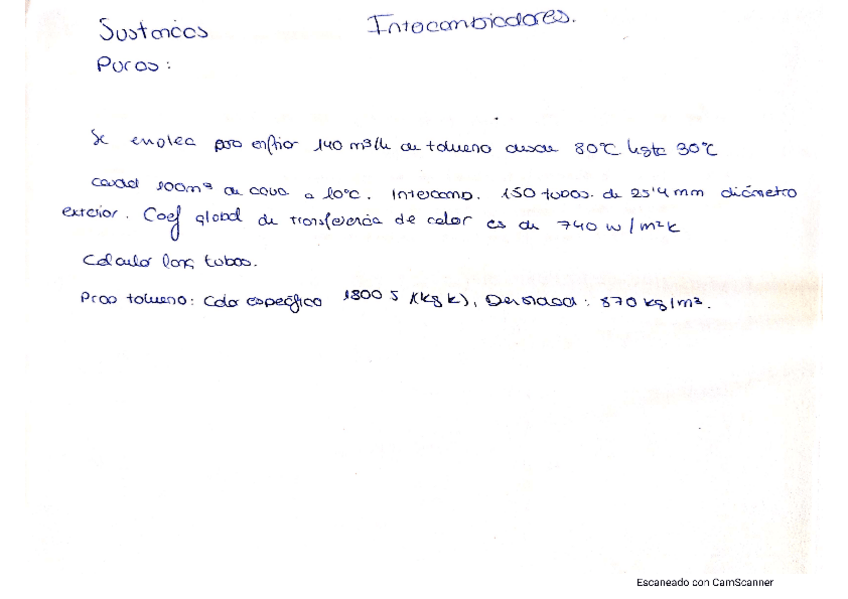 Sustancias
Intercambiadores.
Puras:
Se emplea para enfriar 140 m3/h de tolueno desde 80°C hasta 30°C
caudal 100m3 de agua a 10°C. Intercamb. 150 tubos. de 25'4 mm diámetro
exterior. Coef global de transferencia de calor es de 740 w/m²k
Calcular long tubos.
Prop tolueno: Calor específico 1800 J/(kg k), Densidad: 870 kg/m3.
Escaneado con CamScanner